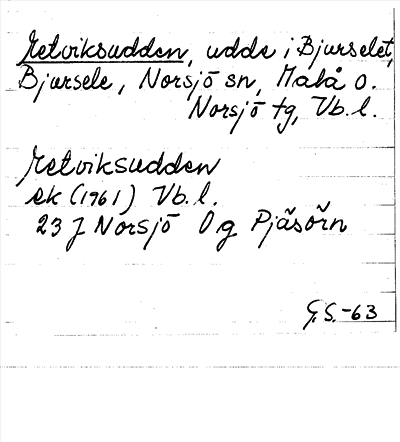 Metviksudden, udde i Bjurselet,
Bjursele, Norsjö sn, Malå o.
Norsjö tg, Vb. l.
Metviksudden
ek (1961) Vb. l.
23 J Norsjö 0 g Pjäsörn
G.S. -63